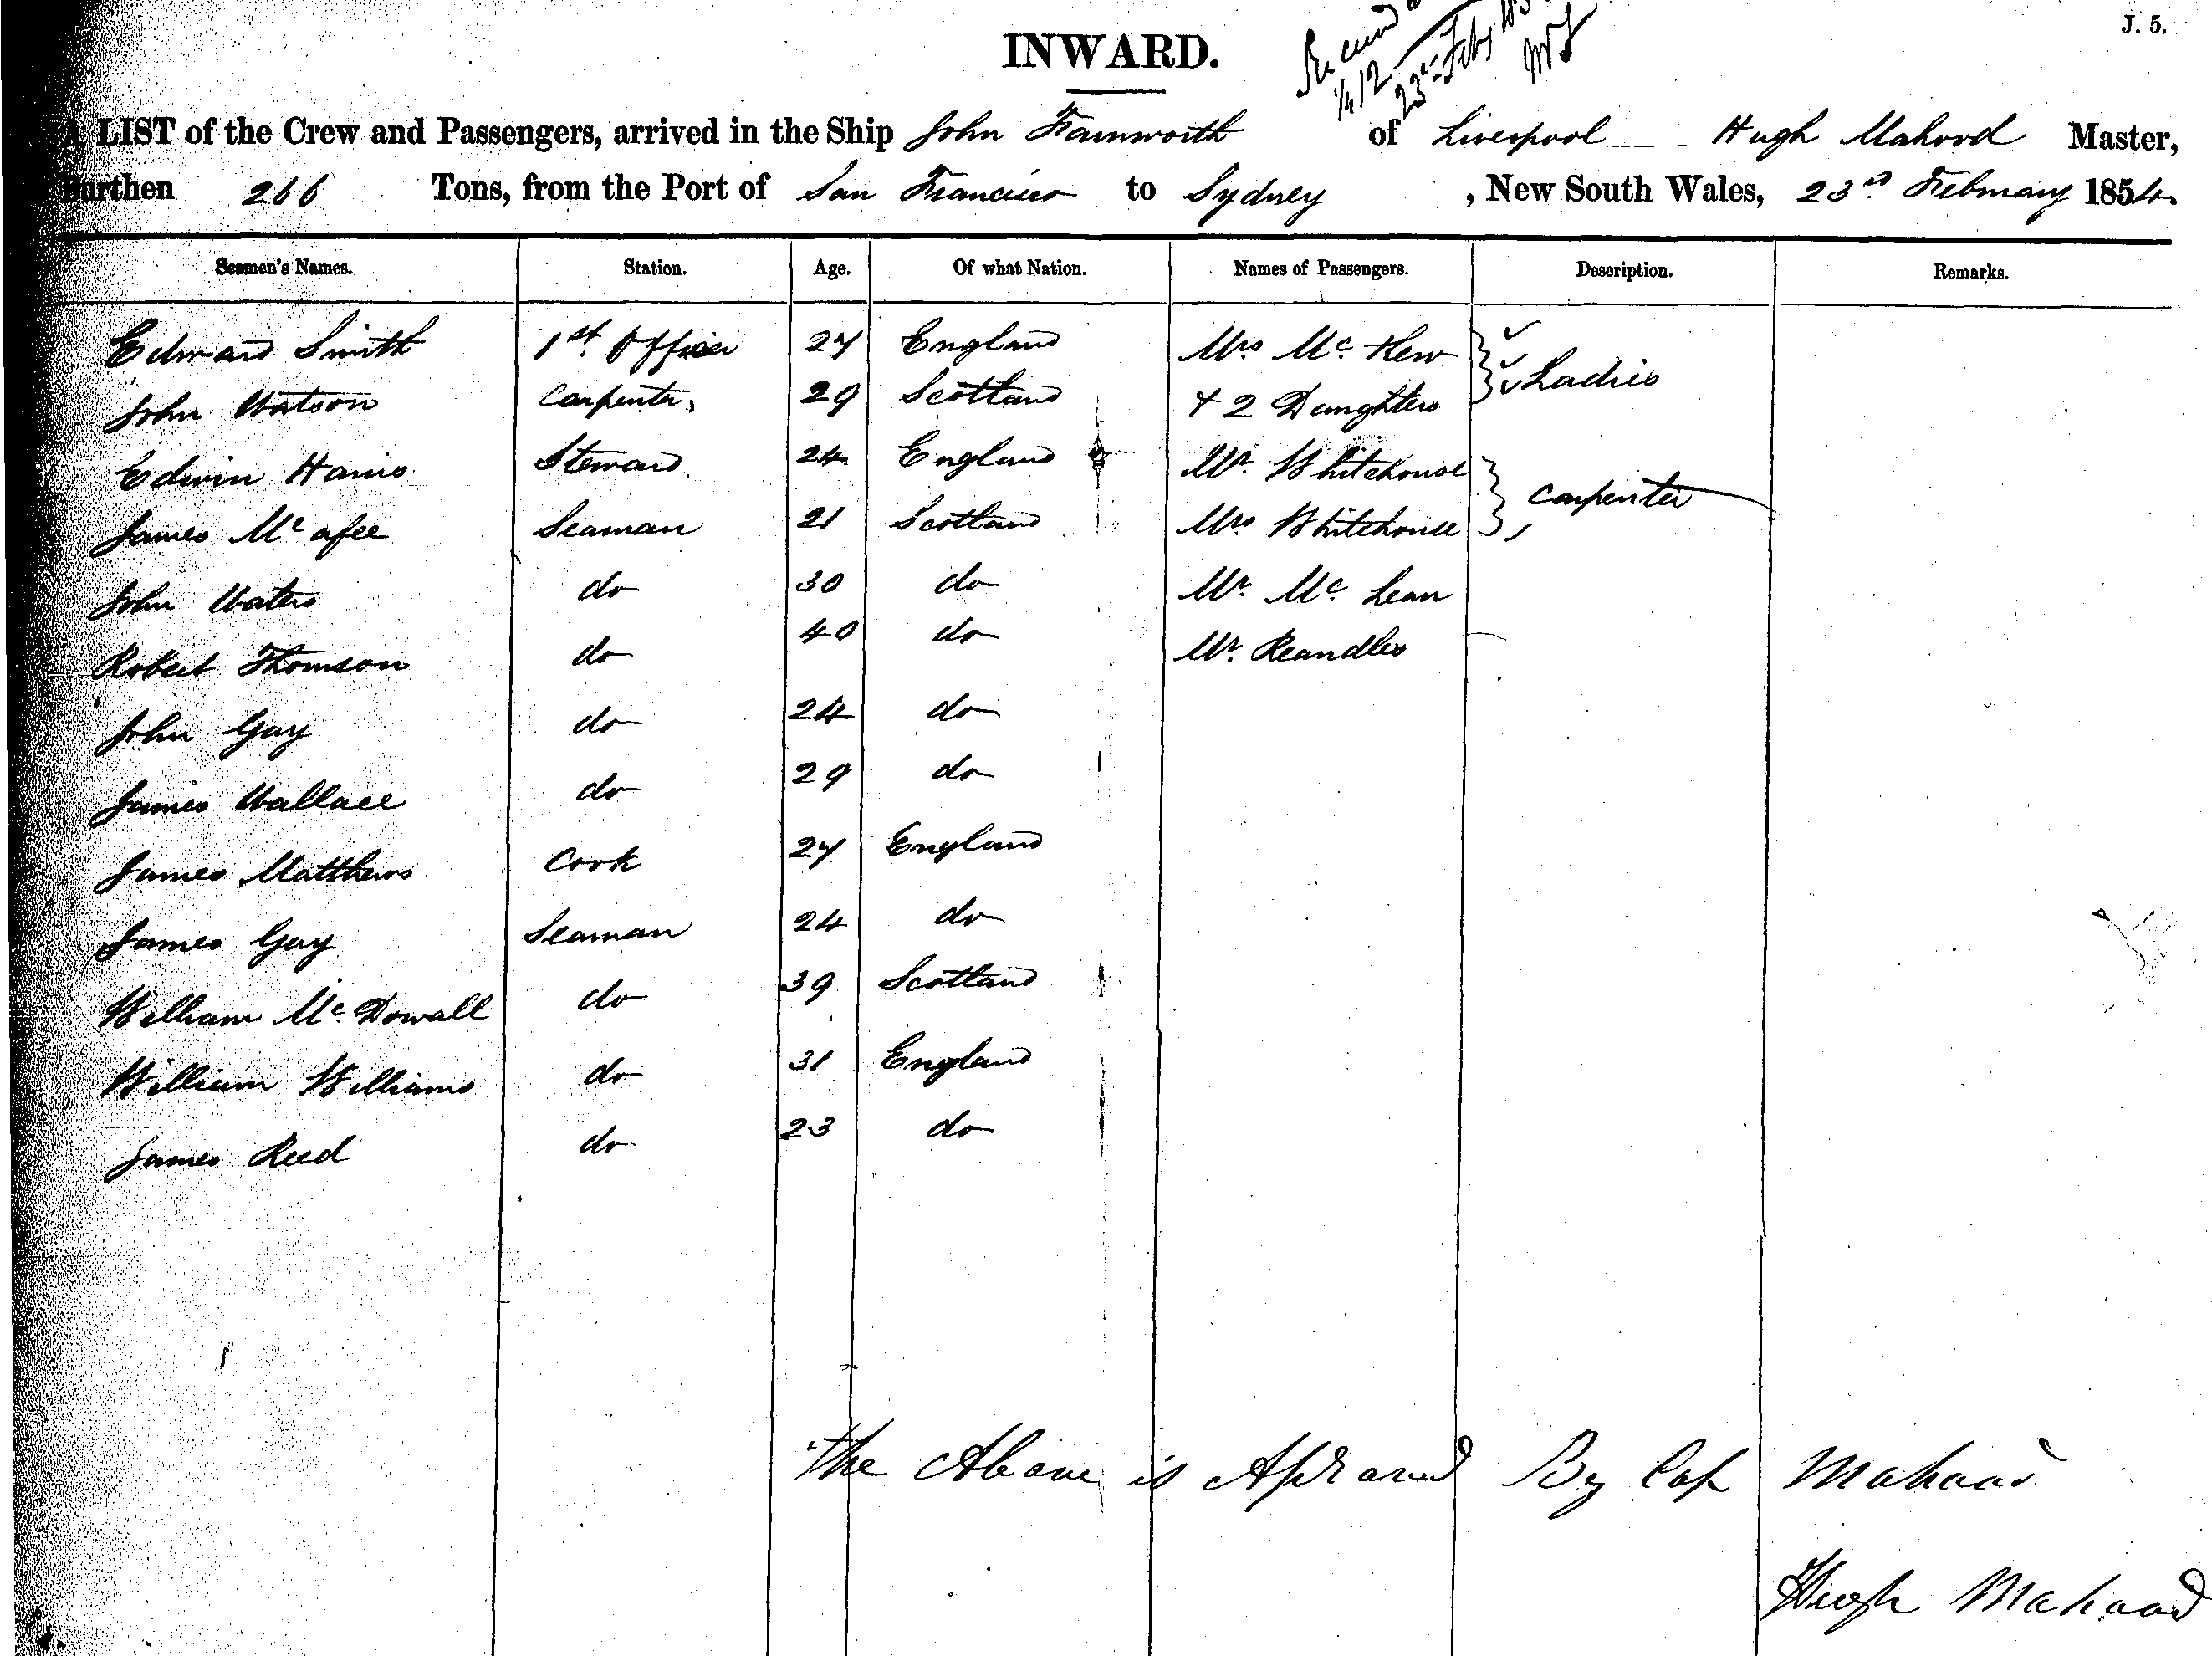 INWARD.
J. 5.
LIST of the Crew and Passengers, arrived in the Ship John Farnworth of Liverpool Hugh Mahood Master,
Burthen 266 Tons, from the Port of San Francisco to Sydney , New South Wales, 23rd February 1854.
Seamen's Names. Station. Age. Of what Nation. Names of Passengers. Description. Remarks.
Edward Smith 1st Officer 27 England Mrs Mc Kew Ladies
John Watson Carpenter 29 Scotland + 2 Daughters
Edwin Harris Steward 24 England Mr. Whitehouse Carpenter
James Mc afee Seaman 21 Scotland Mrs Whitehouse
John Waters do 30 do Mr. Mc Lean
Robert Thomson do 40 do Mr. Reandles
John Gay do 24 do
James Wallace do 29 do
James Matthews Cook 27 England
James Gay Seaman 24 do
William Mc Dowall do 39 Scotland
William Williams do 31 England
James Reed do 23 do
The Above is By Cap Mahood
Hugh Mahood